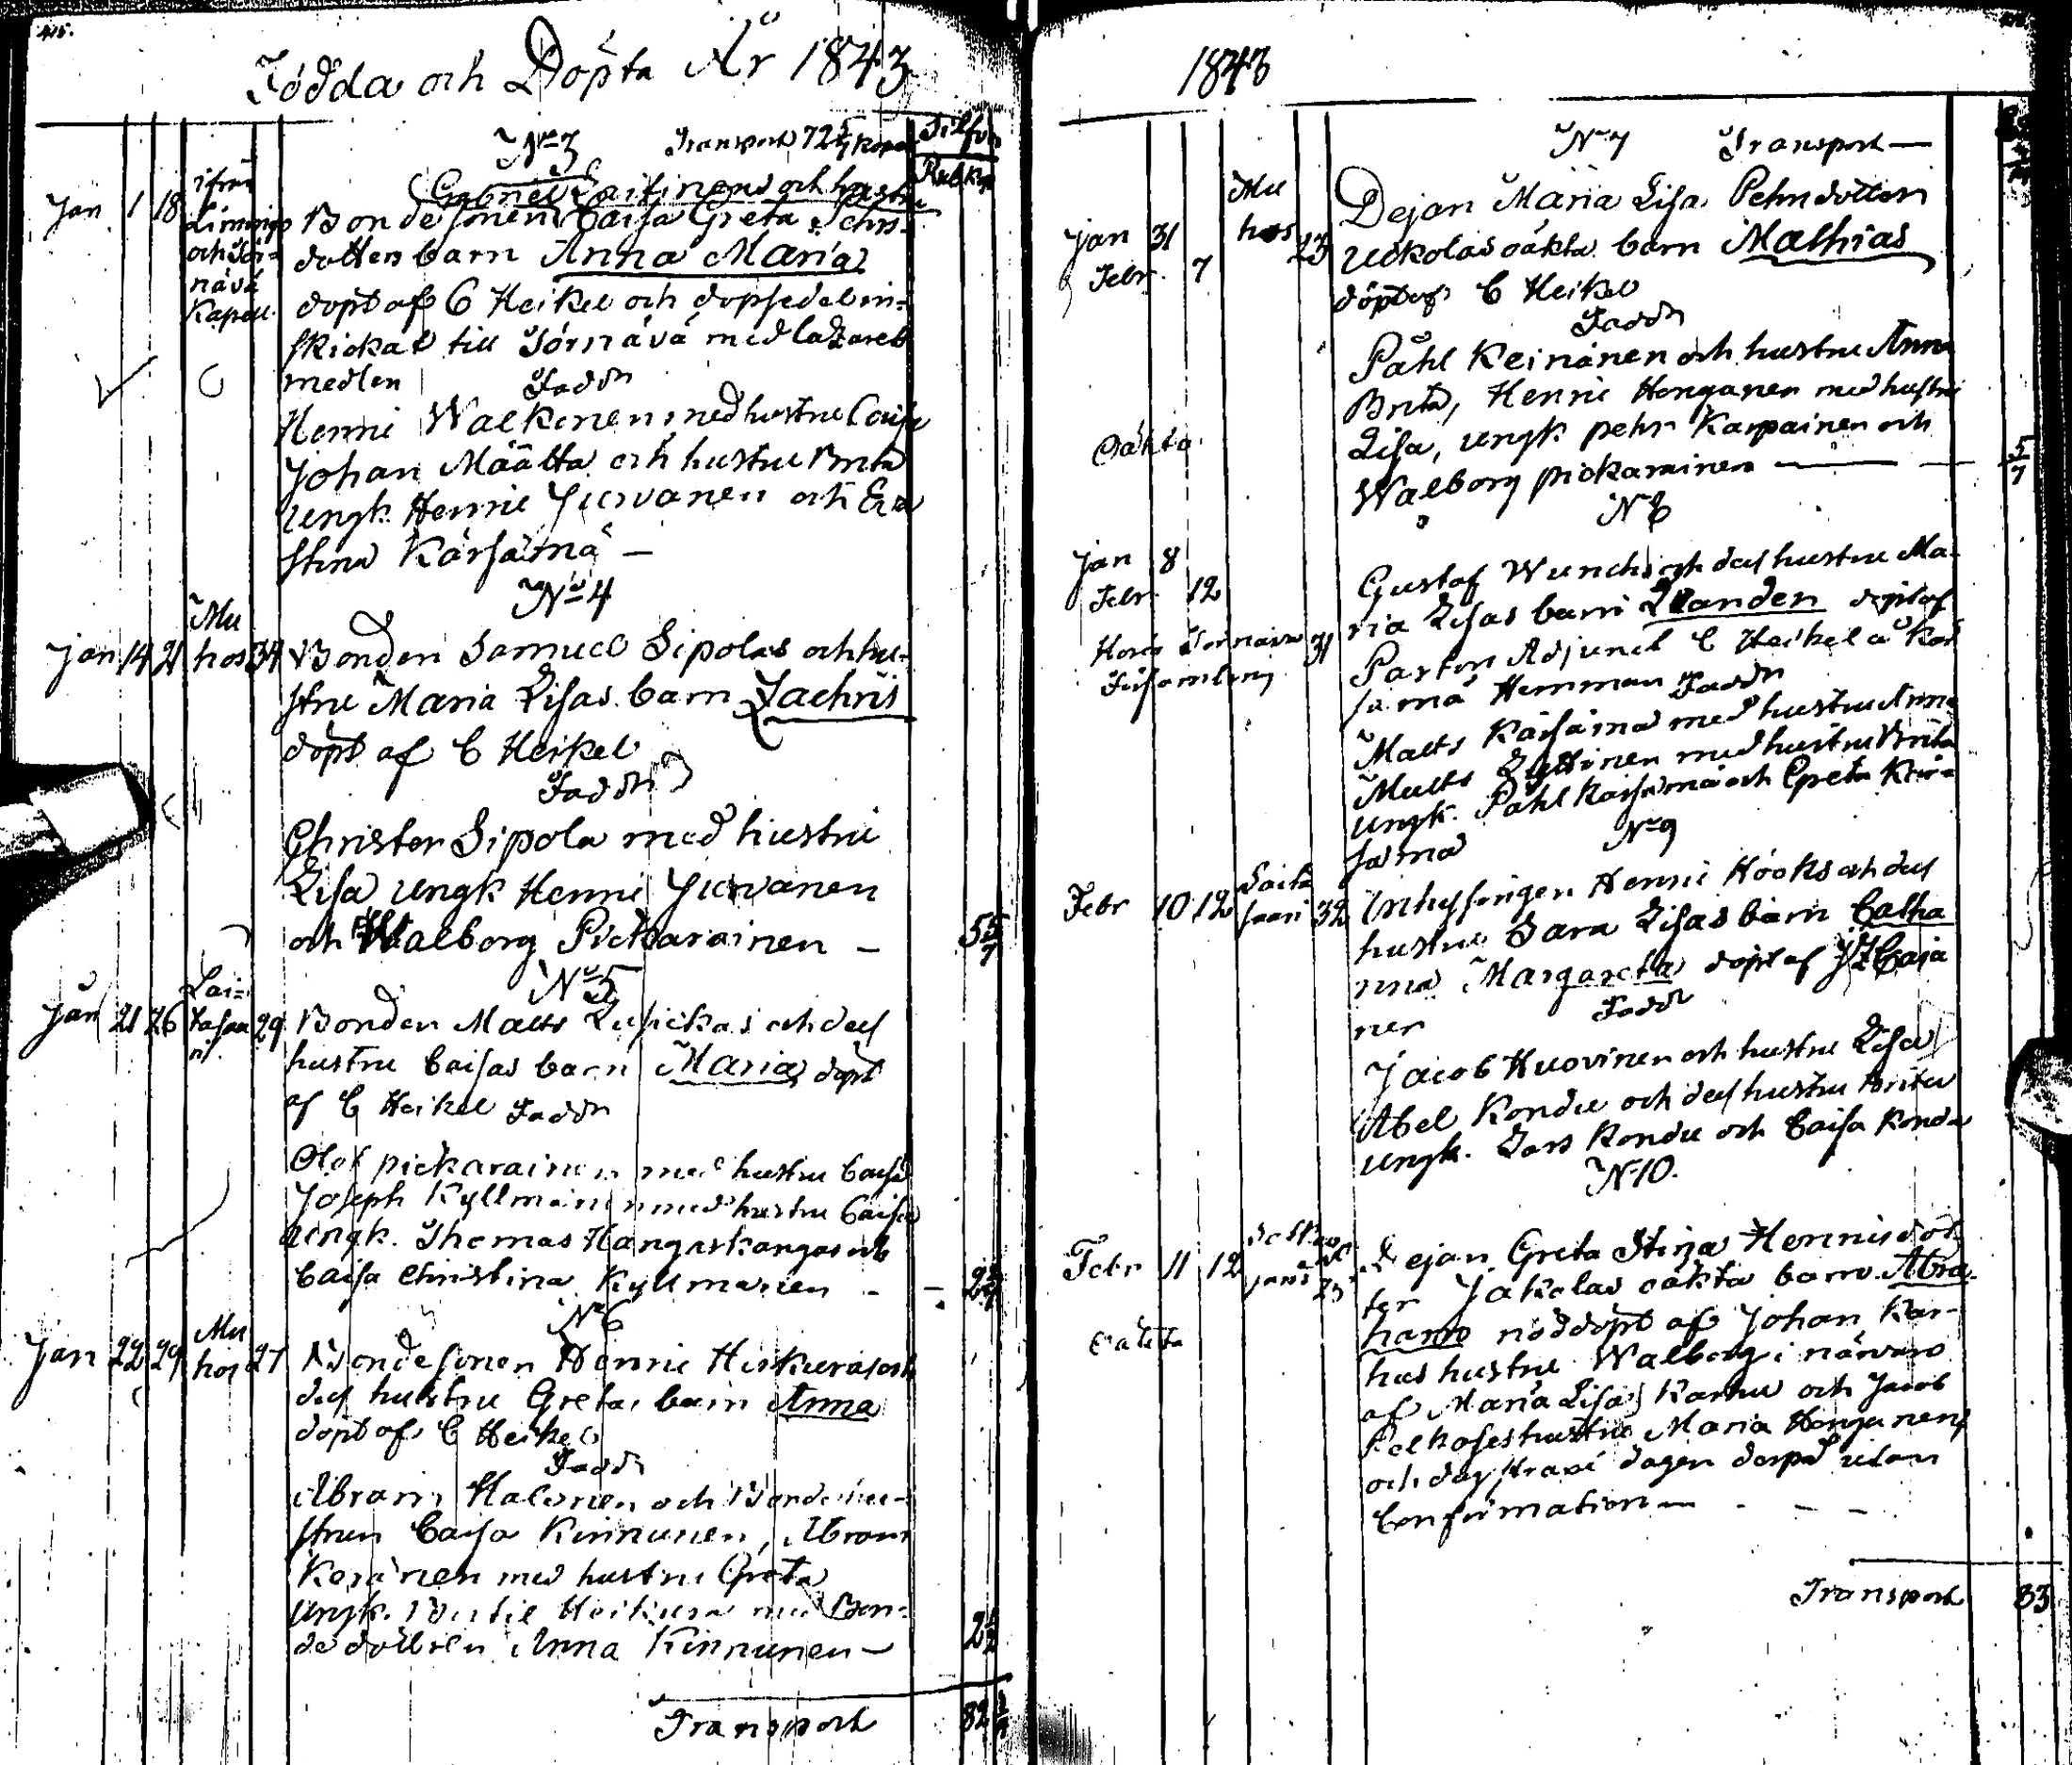 415.
Födda och Döpta År 1843
No 3 Transport 72 kop Silfver
Rub Kop
Jan 1 18 ifrån Limmingo och Tör=nävä Kapell.
Gabriel Laitinens och hustru
Bondesonen Caisa Greta Pehrs-
dotters barn Anna Maria
döpt af C Heikel och dopsedel in-
skickat till Törnävä med lazaretts
medlen Faddr
Henric Walkonen, med hustru Caisa
Johan Määtta och hustru Brita
Ungk. Henric Jurvanen och Eva
Stina Kärsämä —
No 4
Jan 14 21 Mu hos 34
Bonden Samuel Sipolas och hu-
stru Maria Lisas barn Zachris
döpt af C Heikel
Faddr
Christer Sipola med hustru
Lisa Ungk Henric Jurvanen
och Walborg Pickarainen — 5 5/7
No 5
Jan 21 26 Lai=tasaari. 29
Bonden Matts och dess
hustru Caisas barn Maria, döpt
af C Heikel Faddr
Olof pickarainen med hustru Caisa
Joseph Kyllmänen med hustru Caisa
ungk. Thomas Hangaskangas och
Caisa Christina Kyllmänen -
No 6
Jan 22 29 Mu hos 27
Bondesonen Henric och
dess hustru Greta, barn Anna
döpt af C Heikel
Faddr
Abram Halonen och Bondehu-
strun Caisa Kinnunen, Abram
Keränen med hustru Greta
Ungk. med Bon-
dedottren Anna Kinnunen —
Transport 82
1843
No 7 Transport —
Jan 31 Febr. 7 Mu hos 23
Dejan Maria Lisa Pehrsdotters
Uckolas oäkta barn Mathias
döpt af C Heikel
Faddr
Påhl Keinänen och hustru Anna
Brita, Henric Honganen med hustru
Oäkta
Lisa, ungk pehr Karpainen och
Walborg pickarainen — 5/7
No 8
Jan 8
Febr 12
Gustaf Wunch och dess hustru Ma-
ria Lisas barn döpt af
31
Församling
Pastors Adjunct C Heikel å Kär
sämä Hemman Faddr
Matts Kärsämä med hustru Anna
Matts med hustru Brita
Ungk. Påhl Kärsämä och Greta Kär-
sämä
No 9
Febr 10 12 Laita saari 32
Inhysingen Henric Höök och dess
hustru Sara Lisas barn Catha
rina Margareta döpt af J Z Caja
ner Faddr
Jacob Huovinen och hustru Lisa
Abel Kondu och dess hustru Brita
ungk. Lars Kondu och Caisa Kondu
No 10.
Febr 11 12
Dejan Greta Stina Henrisdot
ter Jakolas oäkta barn Abra-
ham nöddöpt af Johan Kar-
Oäkta
hus hustru Walborg i närvaro
af Maria Lisa Karhu och Jacob
hustru Maria Honganens
och dog straxt dagen derpå utan
Confirmation —
Transport 83